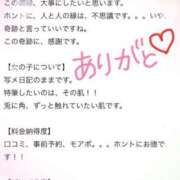 この奇跡、大事にしたいと思います。
ホントに、人と人の縁は、不思議です。。いや、
奇跡と言っていいですね。
この奇跡に、感謝です。
ありがと♡
【穴の子について】
写メ日記のままです。
特筆したいのは、その肌！！
兎に角、ずっと触れていたい肌です。
【料金納得度】
口コミ、事前予約、モアポ。。。ホントにお徳で
す！！